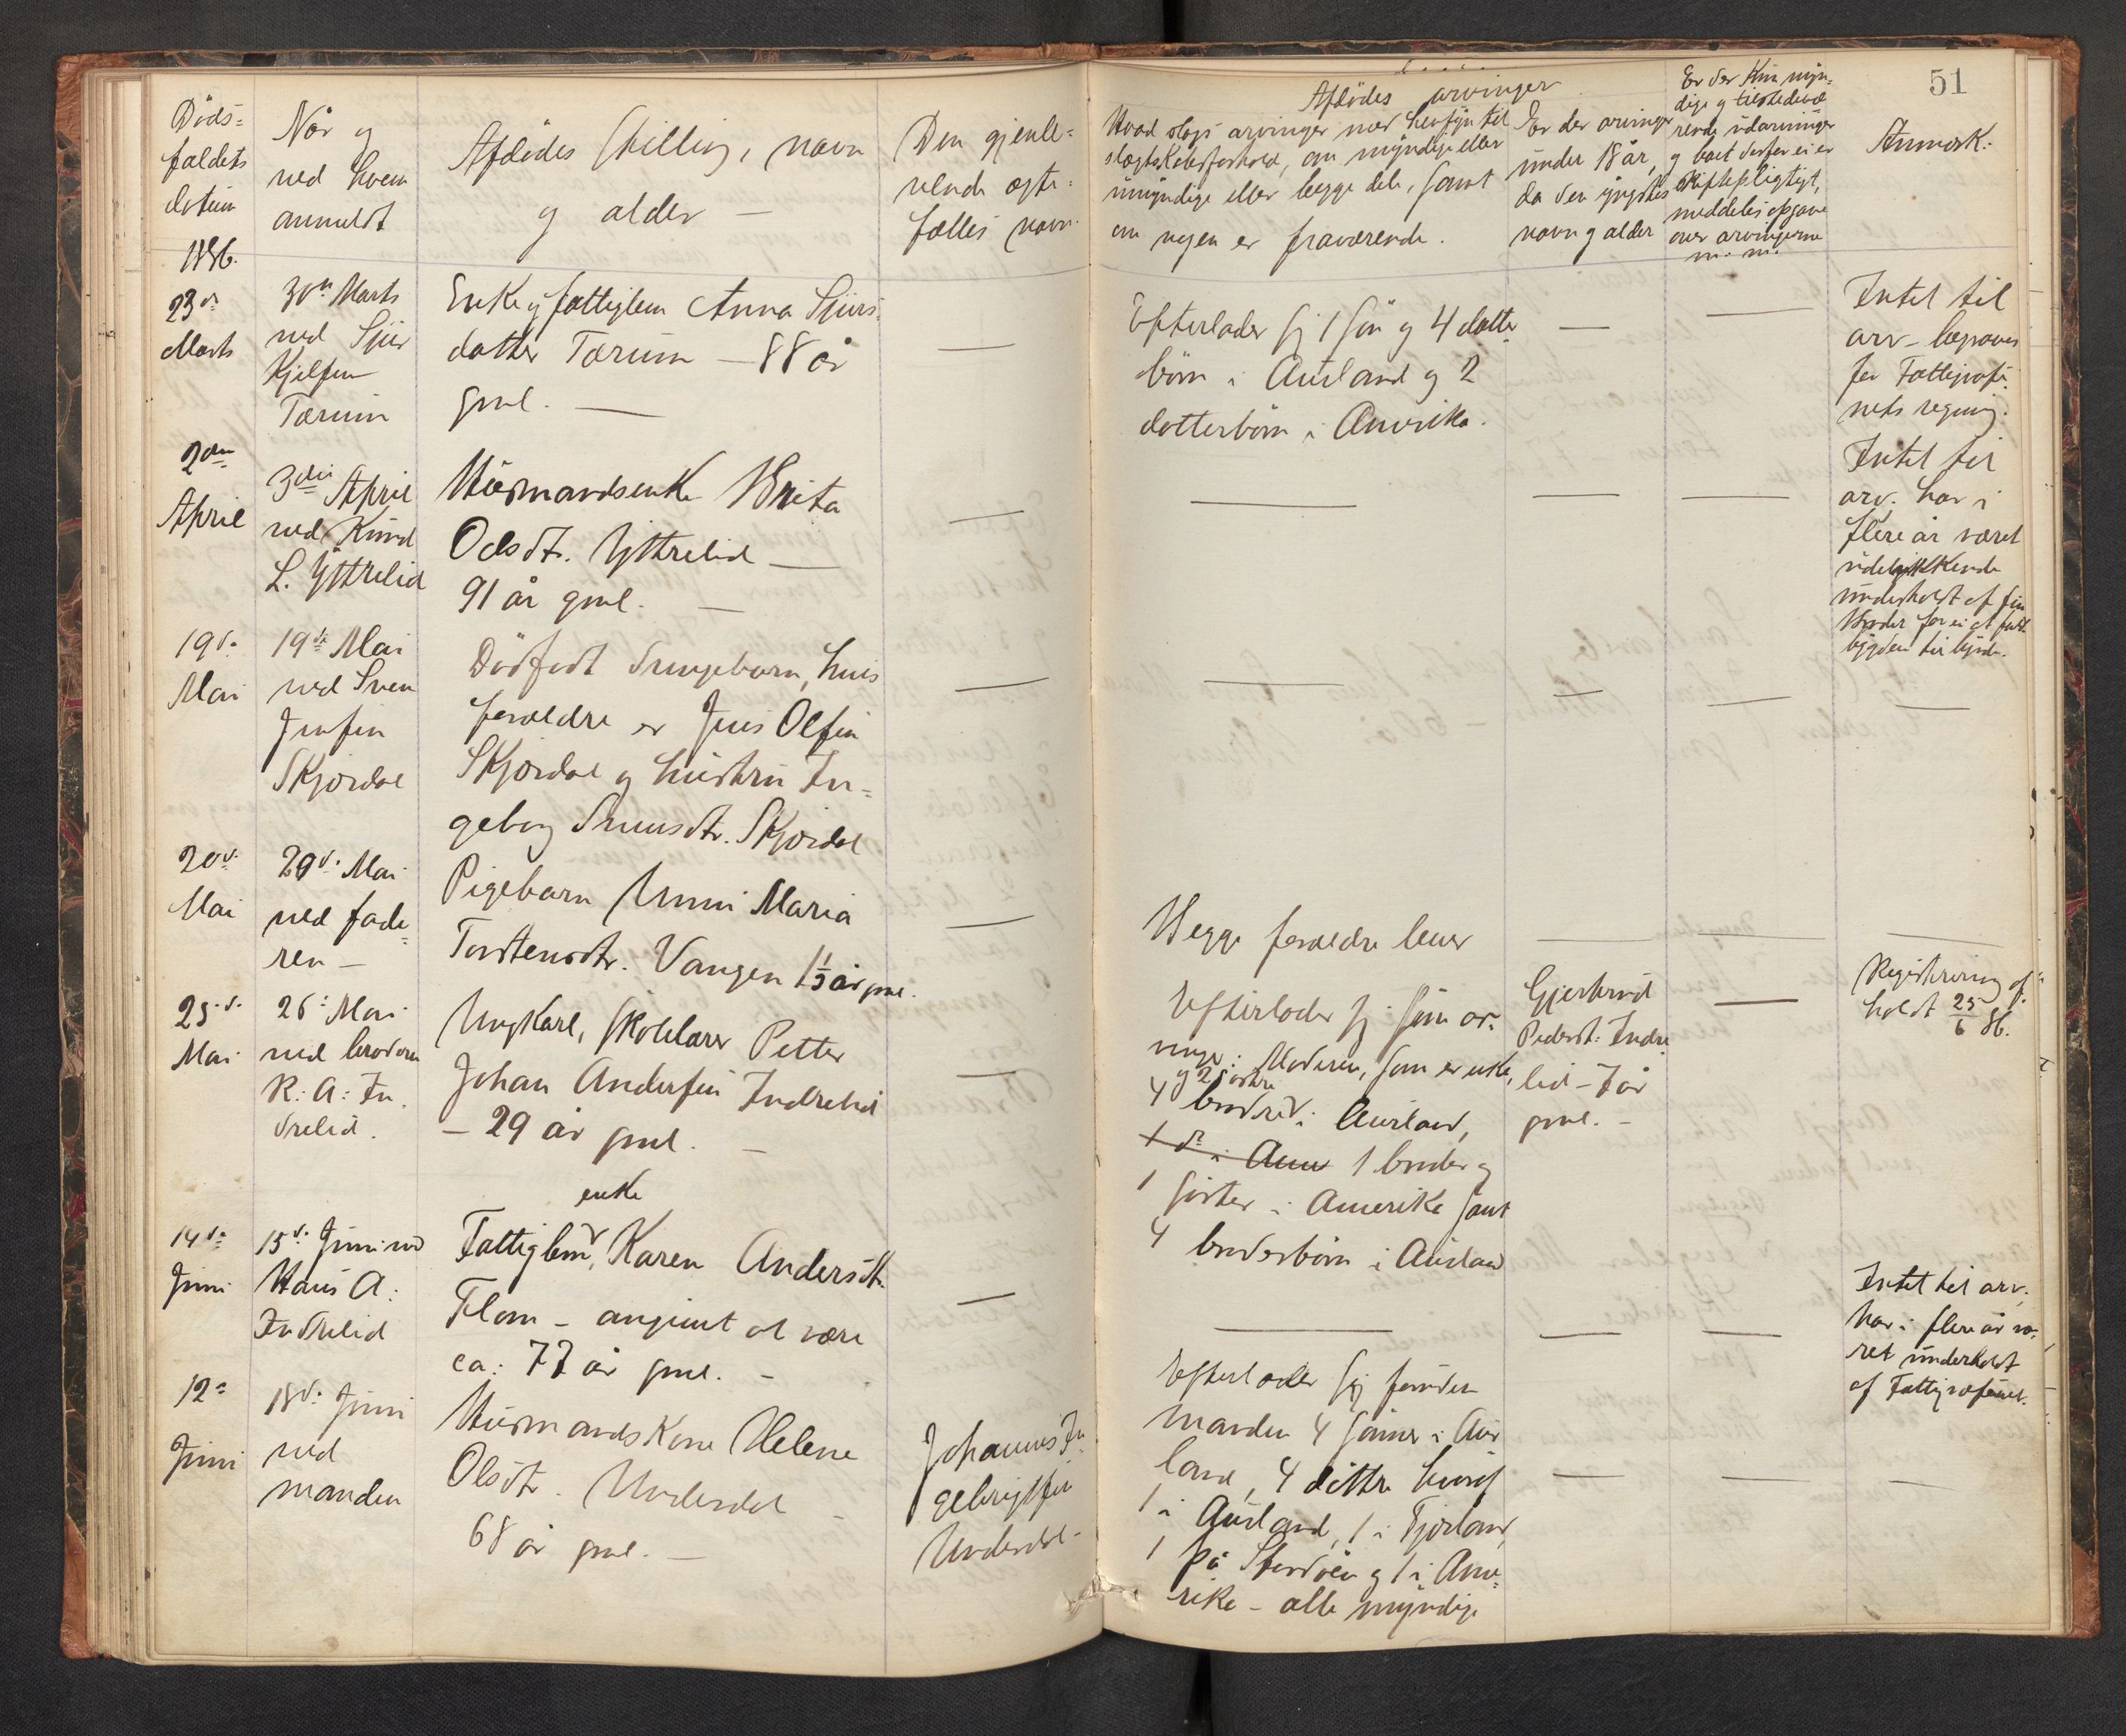 51
Døds-
faldets
datum
1886.
Når og
ved hvem
anmeldt
Afdødes Stilling, navn
og alder —
Den gjenle-
vende ægte-
fælles navn.
Afdødes arvinger
Hvad slags arvinger med hensyn til
slægtskabsforhold, om myndige eller
umyndige eller begge dele, samt
om nogen er fraværende.
Er der arvinger
under 18 år,
da den yngstes
navn og alder
Er der kun myn-
dige og tilstedevæ
rende udarvinger
og boet derfor ei er
skiftepligtigt,
meddeles opgave
over arvingerne
m. m.
Anmærk:
23de
Marts
30te Marts
ved Sjur
Kjelsen
Tærum
Enke og fattiglem Anna Sjurs-
datter Tærum — 88 år
gml. —
—
Efterlader sig 1 søn og 4 datter
børn i Aurland og 2
datterbørn i Amerika.
—
—
Intet til
arv – begraves
for Fattigvæse
nets regning.
2den
April
3die April
ved Knud
L. Yttrelid
Husmandsenke Brita
Olsdt. Yttrelid —
91 år gml. —
—
—
—
—
Intet til
arv. har i
flere år været
udelukkende
underholdt af sin
broder for ei at falde
bygden til byrde.
19de
Mai
19de Mai
ved Sven
Jensen
Skjerdal
Dødfødt Drengebarn, hvis
forældre er Jens Olsen
Skjerdal og hustru In-
geborg Svensdtr. Skjerdal
—
—
—
—
—
20de
Mai
29de Mai
ved fade-
ren —
Pigebarn Unni Maria
Torstensdtr. Vangen 1½ år gml.
—
Begge forældre lever
—
—
—
25de
Mai
26: Mai
ved broderen
R: A: In-
drelid.
Ungkarl, skolelærer Petter
Johan Andersen Indrelid
— 29 år gml. —
—
Efterlader sig som ar-
vinger: Moderen, som er enke,
og 2 søstre
4 brødre i Aurland,
1 do i Ame 1 broder og
1 søster i Amerika samt
4 broderbørn i Aurland
Gjertrud
Pedersdt. Indre
lid – 7 år
gml. –
—
Registrering af-
holdt 25/6 86.
14de
Juni
15de Juni ved
Hans A:
Indrelid
enke
Fattiglem, Karen Andersdtr.
Flam – angivet at være
ca: 77 år gml. –
—
—
—
—
Intet til arv.
har i flere år væ-
ret underholdt
af Fattigvæsenet.
12te
Juni
18de Juni
ved
manden
Husmandskone Helene
Olsdtr. Underdal –
68 år gml. —
Johannes In
gebrigtsen
Underdal –
Efterlader sig foruden
manden 4 sønner i Aur
land, 4 døttre hvoraf
1 i Aurland, 1 i Fjærland,
1 på Stordøen og 1 i Ame-
rika – alle myndige
—
—
—